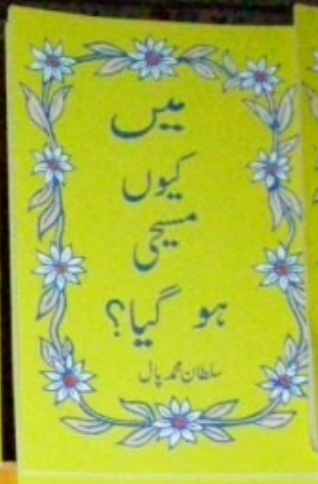 میں
کیوں
مسیحی
ہو گیا؟
سلطان محمد پال